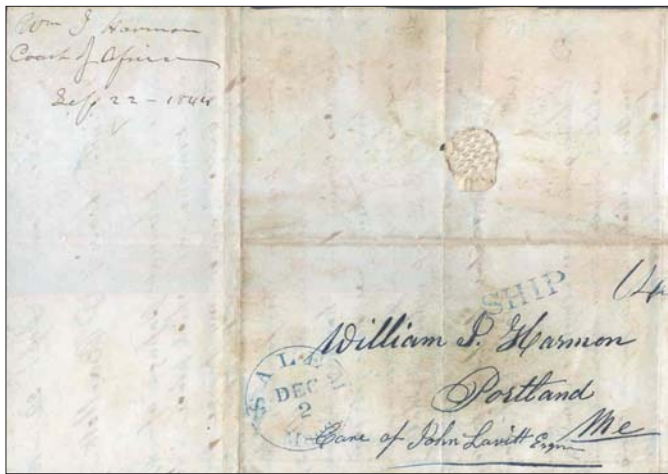 Wm J Harmon
Coast of Africa
Sep 22 - 1844
SHIP
14
William P. Harmon
Portland
Me
Care of John Lavitt Esqr
SALEM
DEC
2